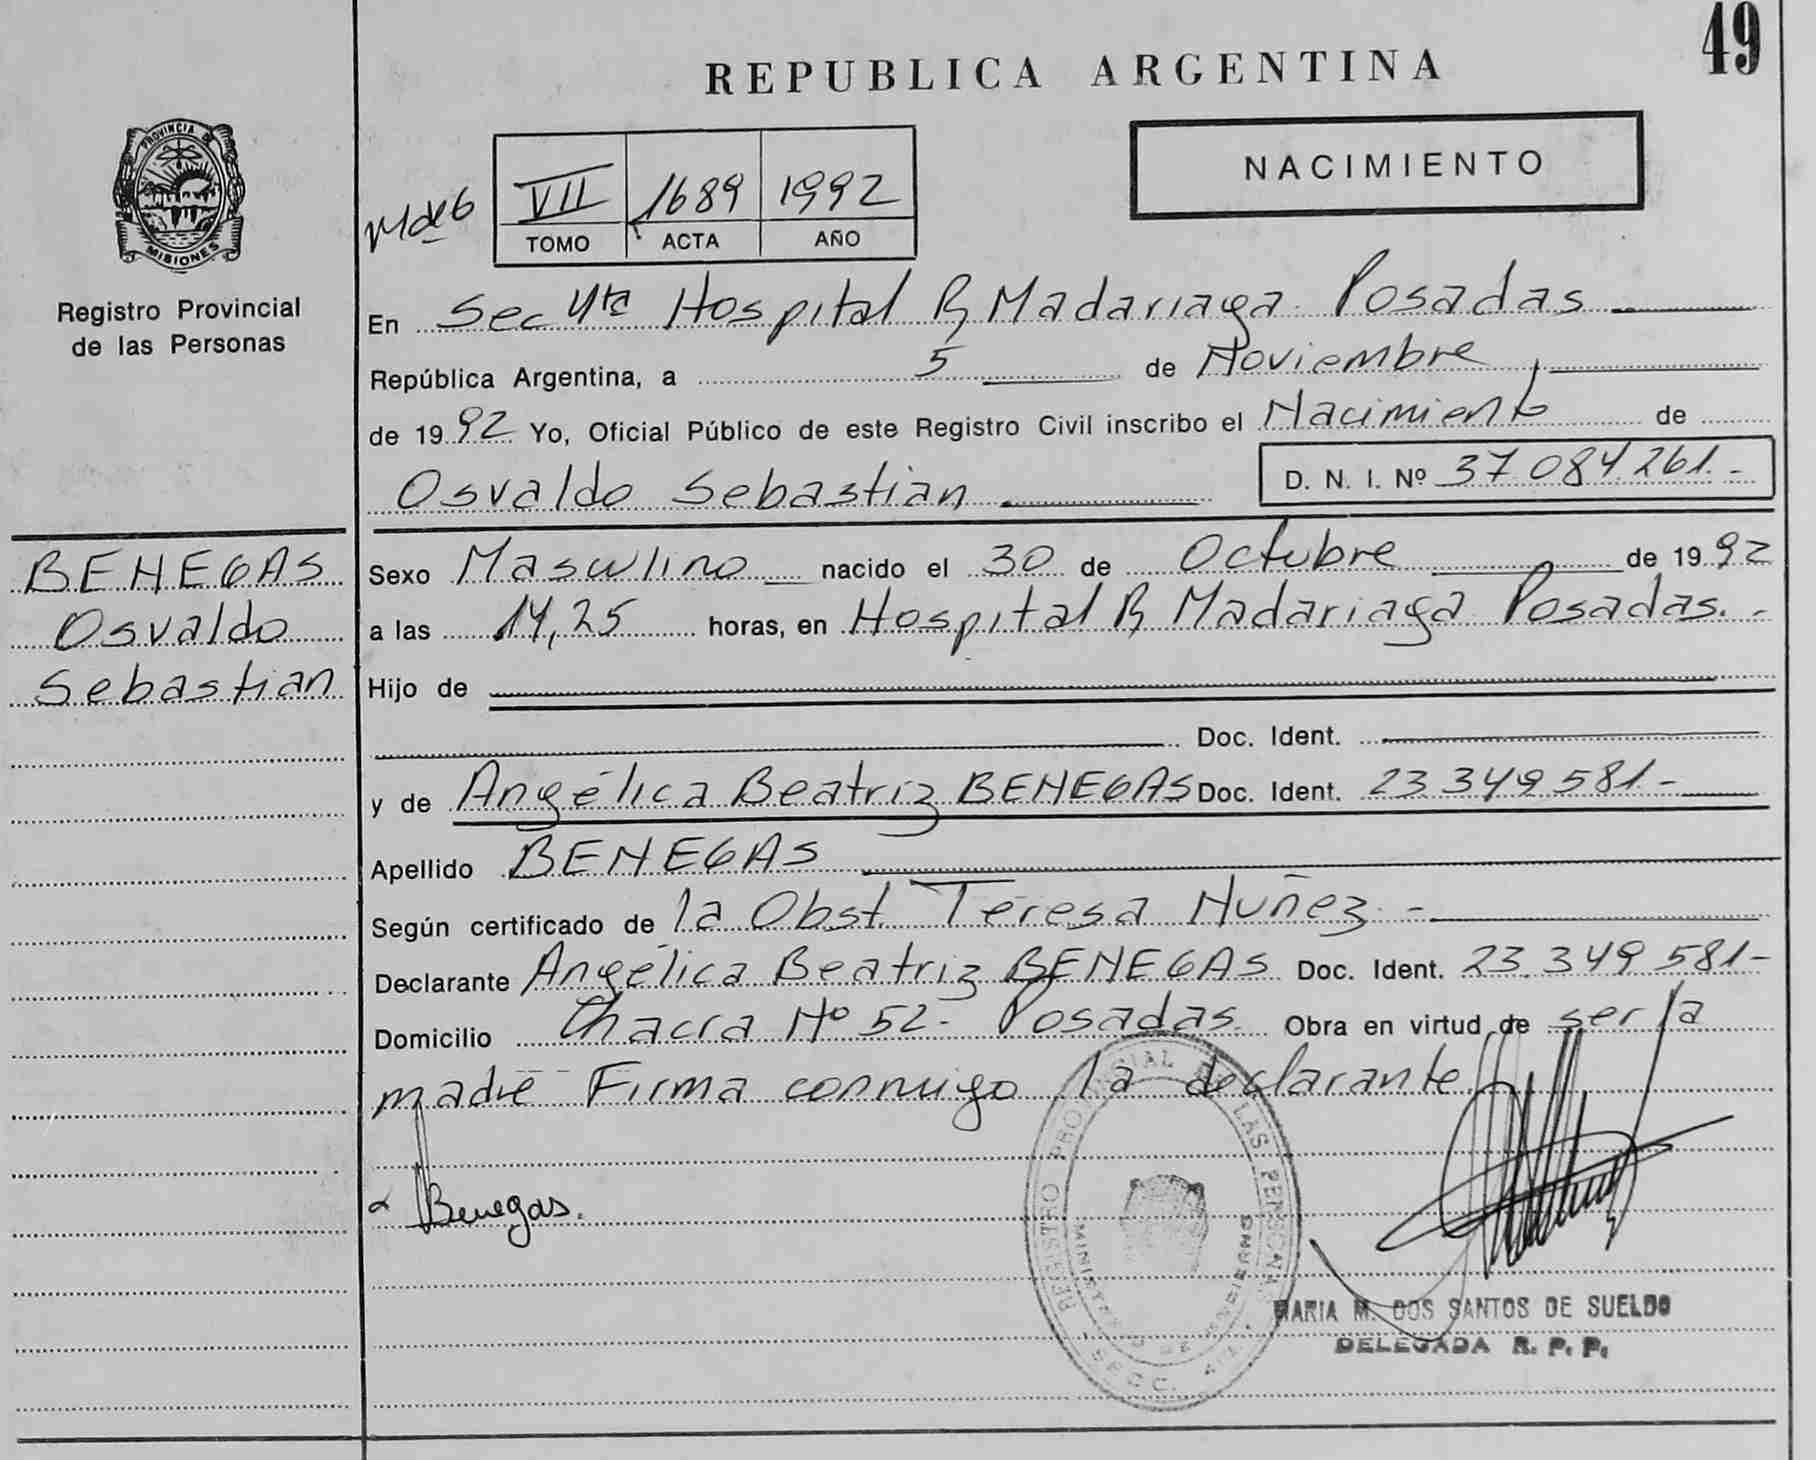 49
REPUBLICA ARGENTINA
NACIMIENTO
PROVINCIA DE
MISIONES
Registro Provincial
de las Personas
VII 1689 1992
TOMO ACTA AÑO
En Sec 4ta Hospital R, Madariaga Posadas
República Argentina, a 5 de Noviembre
de 1992 Yo, Oficial Público de este Registro Civil inscribo el Nacimiento de
Osvaldo Sebastian D. N. I. Nº 37 084.261.-
BENEGAS
Osvaldo
Sebastian
Sexo Masculino nacido el 30 de Octubre de 1992
a las 14,25 horas, en Hospital R, Madariaga Posadas.-
Hijo de
Doc. Ident.
y de Angélica Beatriz BENEGAS Doc. Ident. 23.349.581-
Apellido BENEGAS
Según certificado de la Obst. Teresa Nuñez.-
Declarante Angélica Beatriz BENEGAS Doc. Ident. 23.349 581-
Domicilio Chacra Nº 52- Posadas. Obra en virtud de ser la
madre Firma conmigo la declarante
Benegas.
REGISTRO PROVINCIAL DE LAS PERSONAS
MARIA M. DOS SANTOS DE SUELDO
DELEGADA R. P. P.